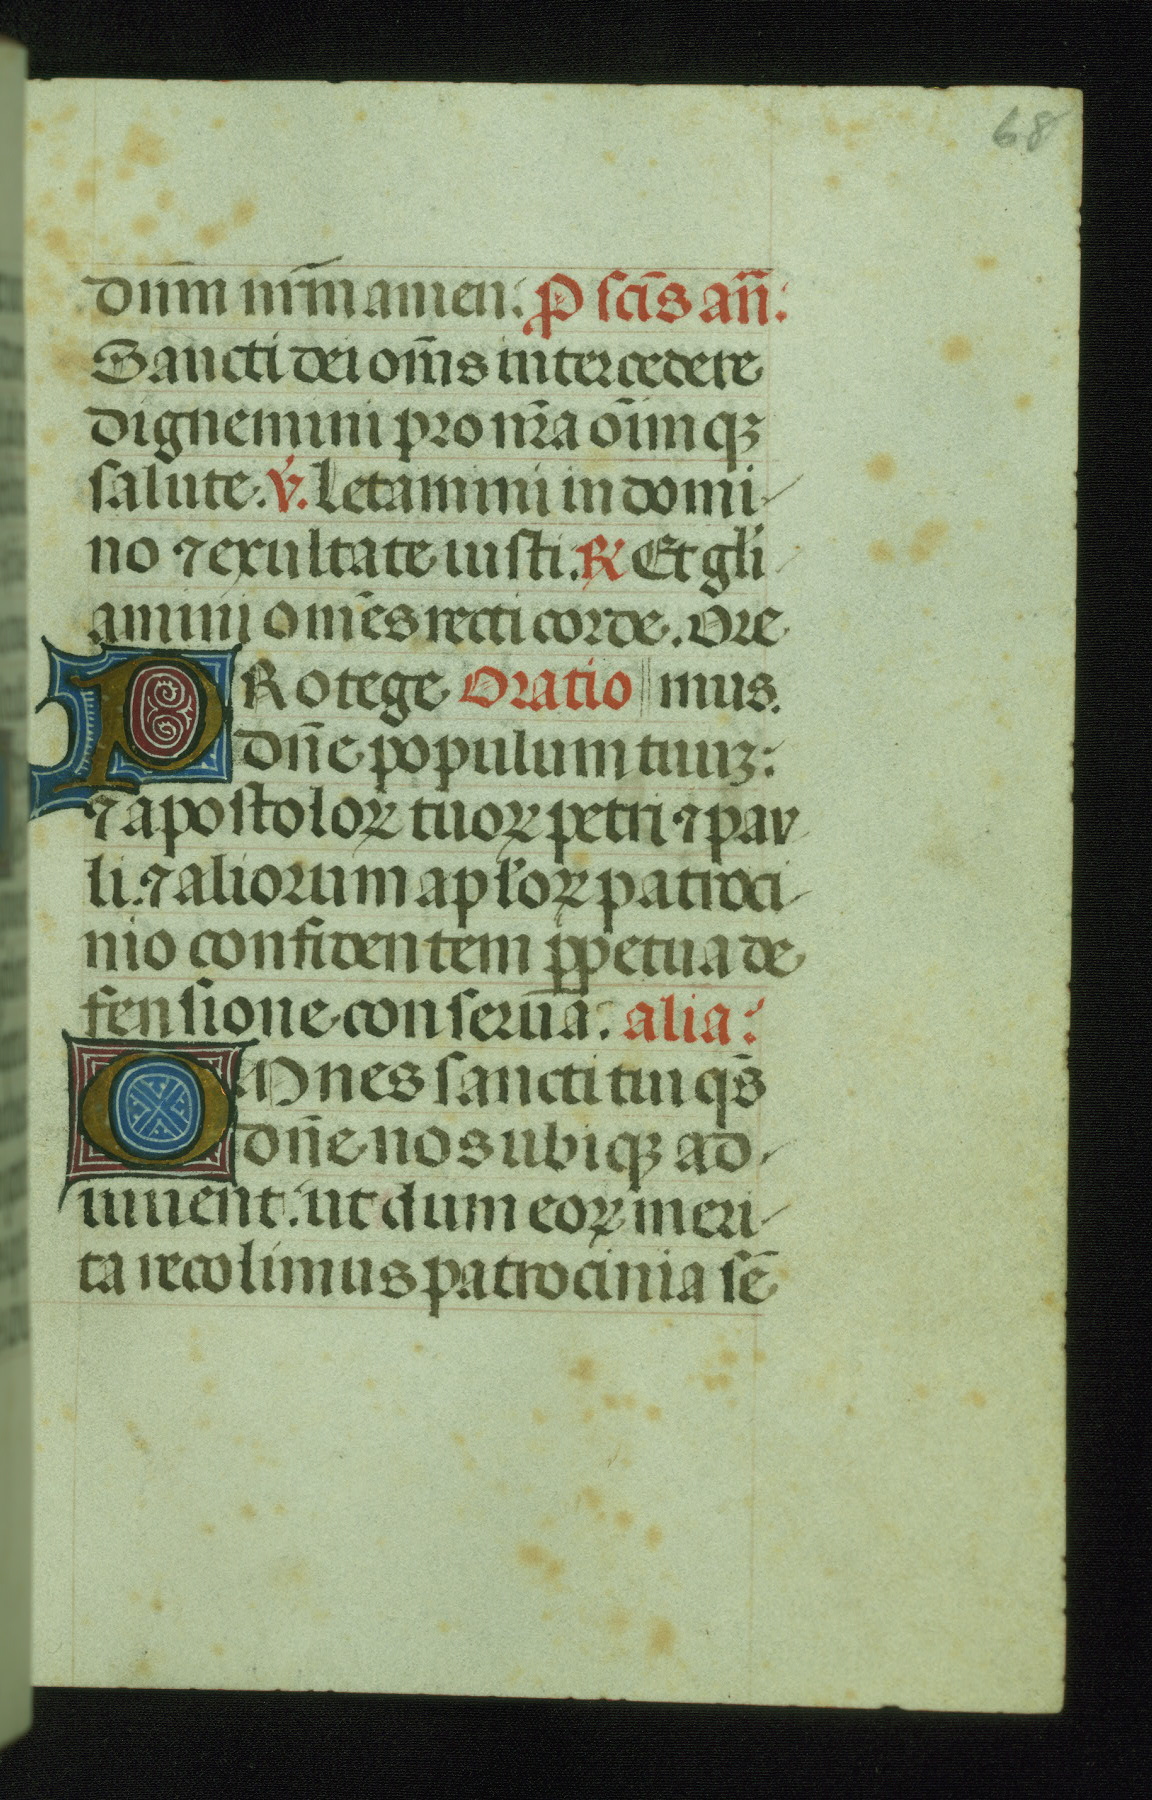 68
dnm̄ nr̄m amen: P sc̄is an̄:
Sancti dei om̄s intercedere
dignemini pro nr̄a oīm qȝ
salute. v̇. Letamini in domi-
no ⁊ exultate iusti. ℟ Et gli-
amini om̄es recti corde. Ore
PRotege Oratio mus.
dn̄e populum tuuȝ:
⁊ apostoloꝝ tuoꝝ petri ⁊ pau
li. ⁊ aliorum apl̄oꝝ patroci-
nio confidentem ꝑpetua de
fensione conserua. alia:
OMnes sancti tui qs̄
dn̄e nos ubiqȝ ad-
iuuent: ut dum eoꝝ meri-
ta recolimus patrocinia sē